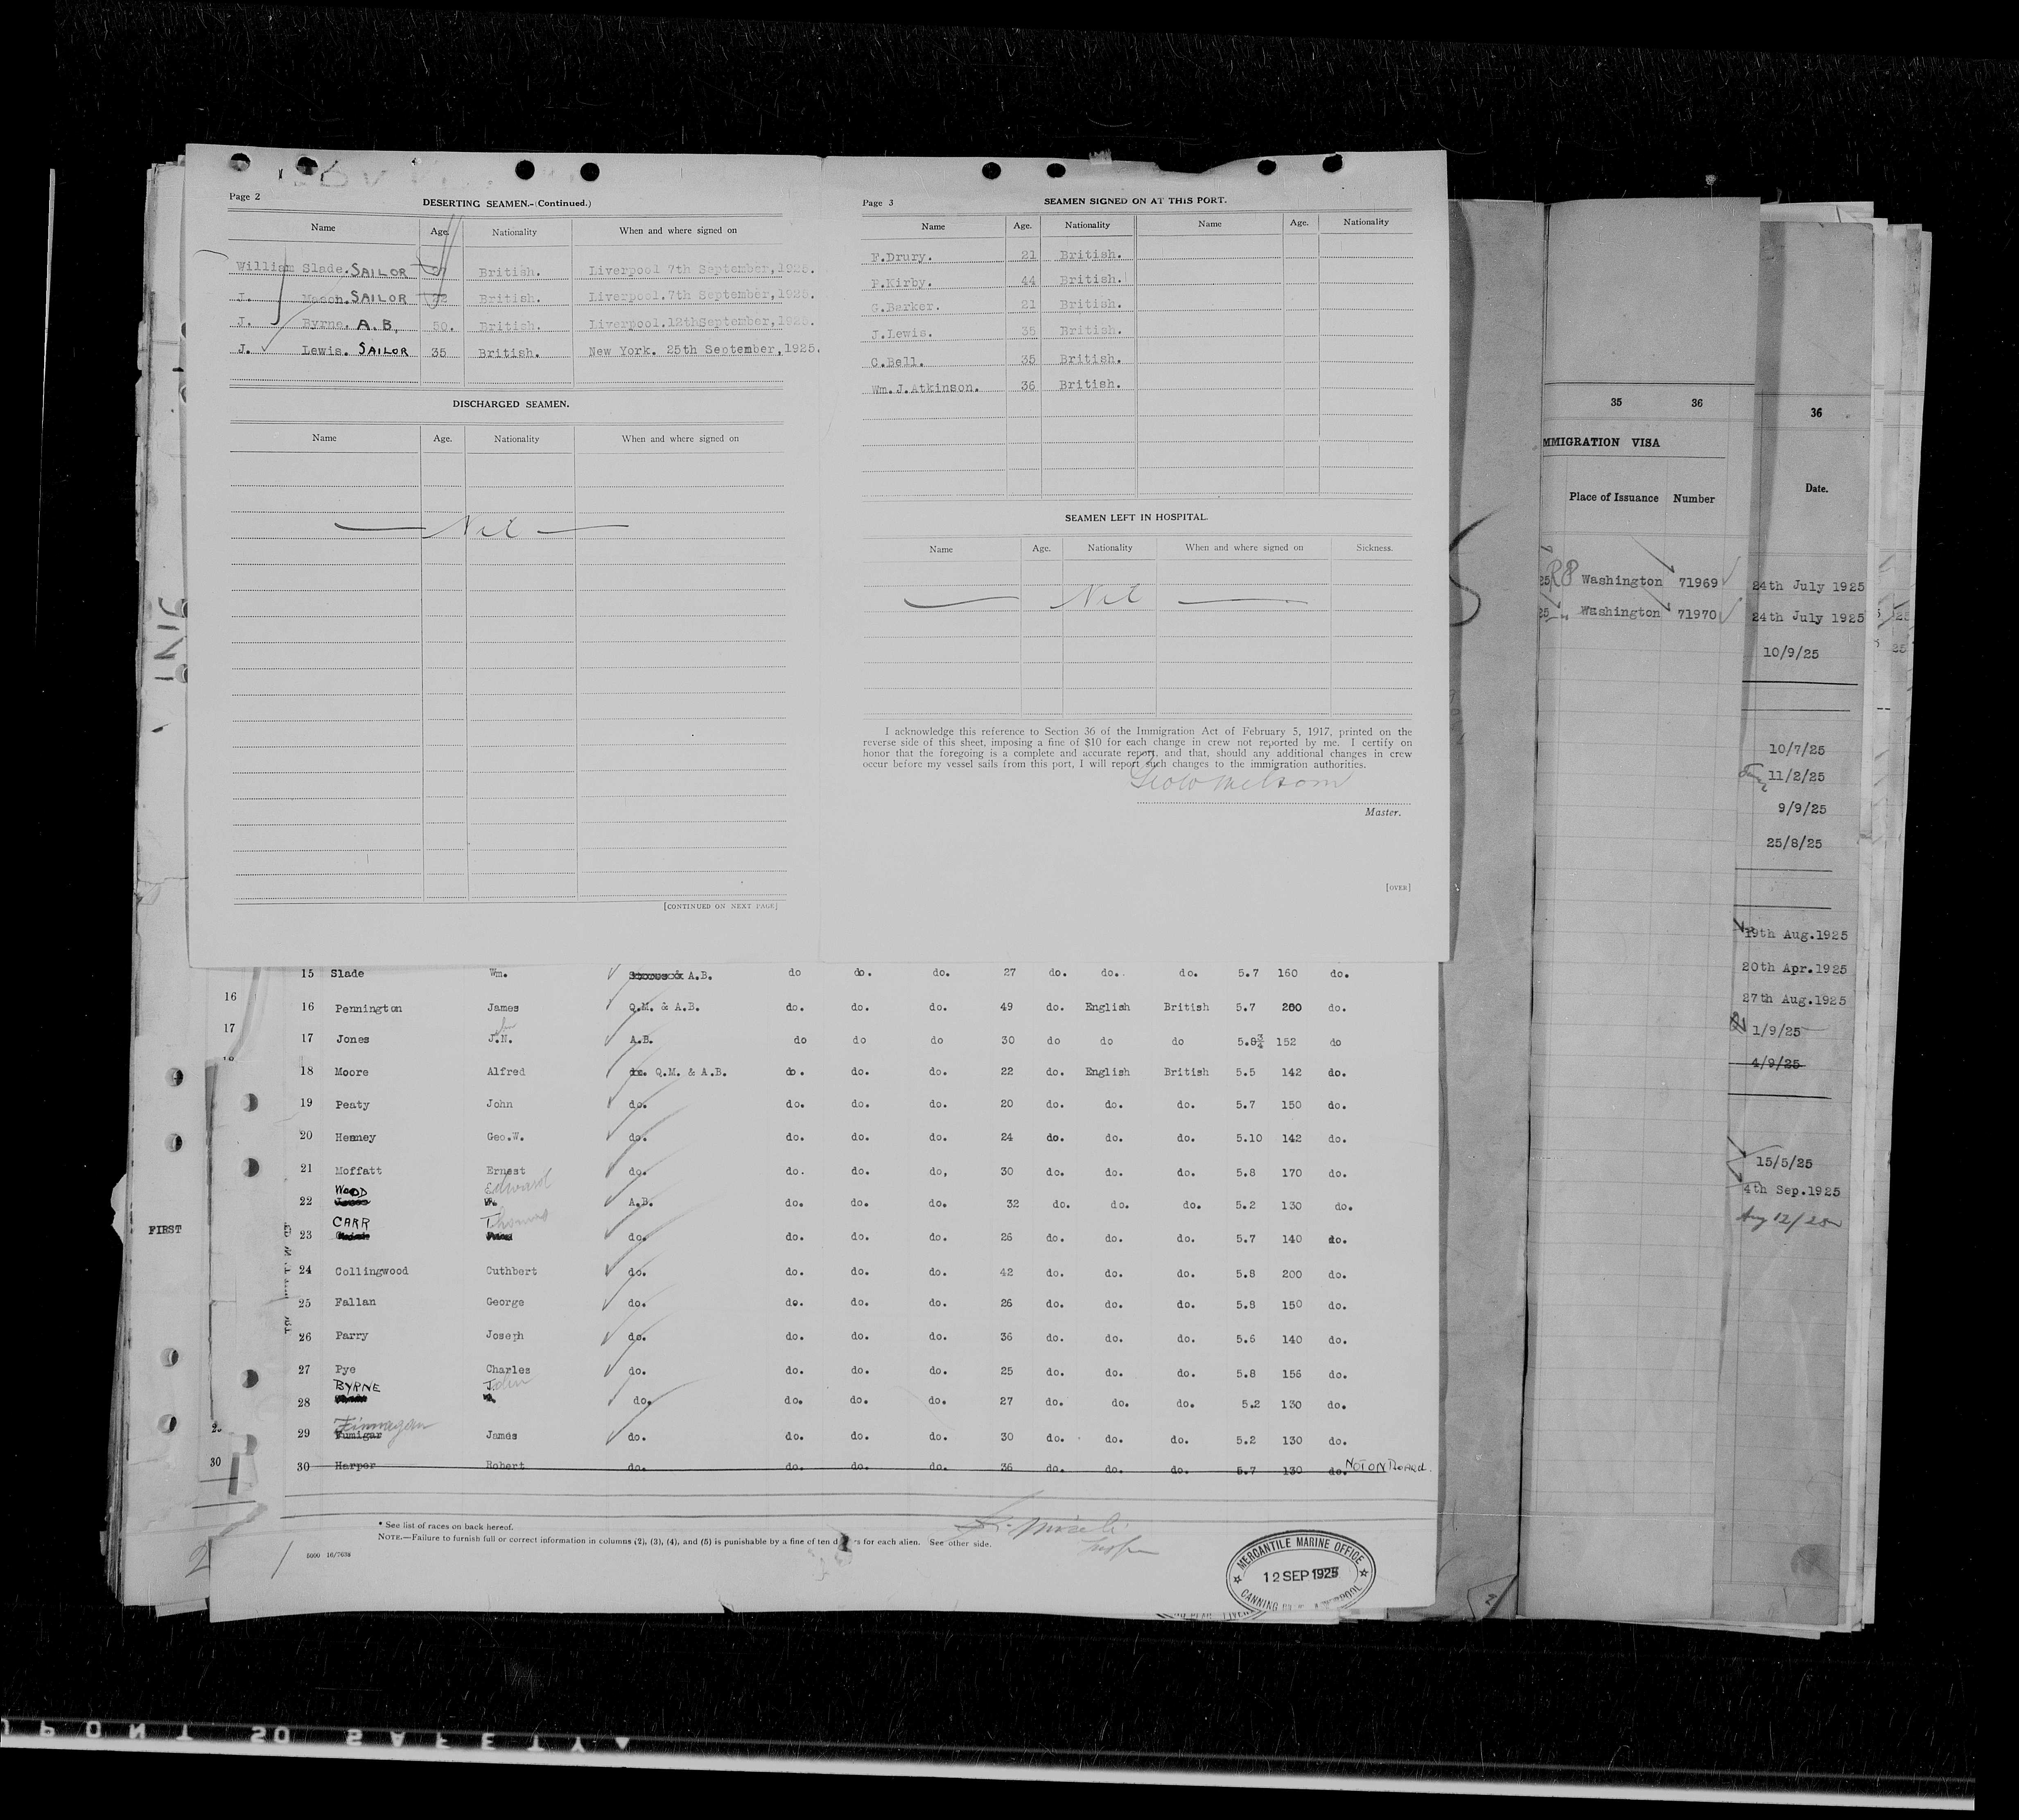 Page 2
DESERTING SEAMEN.-(Continued.)
Name Age. Nationality When and where signed on
William Slade. SAILOR 27 British. Liverpool 7th September, 1925.
J. Mason. SAILOR 22 British. Liverpool. 7th September, 1925.
J. Byrne. A.B. 50. British. Liverpool. 12thSeptember, 1925.
J. Lewis. SAILOR 35 British. New York. 25th September, 1925.
DISCHARGED SEAMEN.
Name Age. Nationality When and where signed on
Nil
[CONTINUED ON NEXT PAGE]
Page 3
SEAMEN SIGNED ON AT THIS PORT.
Name Age. Nationality Name Age. Nationality
F.Drury. 21 British.
P.Kirby. 44 British.
G.Barker. 21 British.
J.Lewis. 35 British.
C.Bell. 35 British.
Wm.J.Atkinson. 36 British.
SEAMEN LEFT IN HOSPITAL.
Name Age. Nationality When and where signed on Sickness.
Nil
I acknowledge this reference to Section 36 of the Immigration Act of February 5, 1917, printed on the
reverse side of this sheet, imposing a fine of $10 for each change in crew not reported by me. I certify on
honor that the foregoing is a complete and accurate report, and that, should any additional changes in crew
occur before my vessel sails from this port, I will report such changes to the immigration authorities.
Master.
[OVER]
15 Slade Wm. A.B. do do. do. 27 do. do. do. 5.7 160 do.
16 Pennington James Q.M. & A.B. do. do. do. 49 do. English British 5.7 200 do.
17 Jones J.N. A.B. do do do 30 do do do 5.8¾ 152 do
18 Moore Alfred do. Q.M. & A.B. do. do. do. 22 do. English British 5.5 142 do.
19 Peaty John do. do. do. do. 20 do. do. do. 5.7 150 do.
20 Henney Geo.W. do. do. do. do. 24 do. do. do. 5.10 142 do.
21 Moffatt Ernest do. do. do. do, 30 do. do. do. 5.8 170 do.
WOOD Edward
22 A.B. do. do. do. 32 do. do. do. 5.2 130 do.
CARR Thomas
23 do. do. do. do. 26 do. do. do. 5.7 140 do.
24 Collingwood Cuthbert do. do. do. do. 42 do. do. do. 5.8 200 do.
25 Fallan George do. do. do. do. 26 do. do. do. 5.8 150 do.
26 Parry Joseph do. do. do. do. 36 do. do. do. 5.6 140 do.
27 Pye Charles do. do. do. do. 25 do. do. do. 5.8 156 do.
BYRNE John
28 do. do. do. do. 27 do. do. do. 5.2 130 do.
Finnagan
29 Fumigar James do. do. do. do. 30 do. do. do. 5.2 130 do.
30 Harper Robert do. do. do. do. 36 do. do. do. 5.7 130 do. NOT ON Board.
* See list of races on back hereof.
NOTE.—Failure to furnish full or correct information in columns (2), (3), (4), and (5) is punishable by a fine of ten d rs for each alien. See other side.
5000 16/7038
MERCANTILE MARINE OFFICE
12 SEP 1925
CANNING
16
17
FIRST
30
35 36
MMIGRATION VISA
Place of Issuance Number
25 R8 Washington 71969
25 Washington 71970
36
Date.
24th July 1925
24th July 1925
10/9/25
10/7/25
11/2/25
9/9/25
25/8/25
19th Aug.1925
20th Apr.1925
27th Aug.1925
1/9/25
4/9/25
15/5/25
4th Sep.1925
Aug 12/25
UPONT SO SAFETY